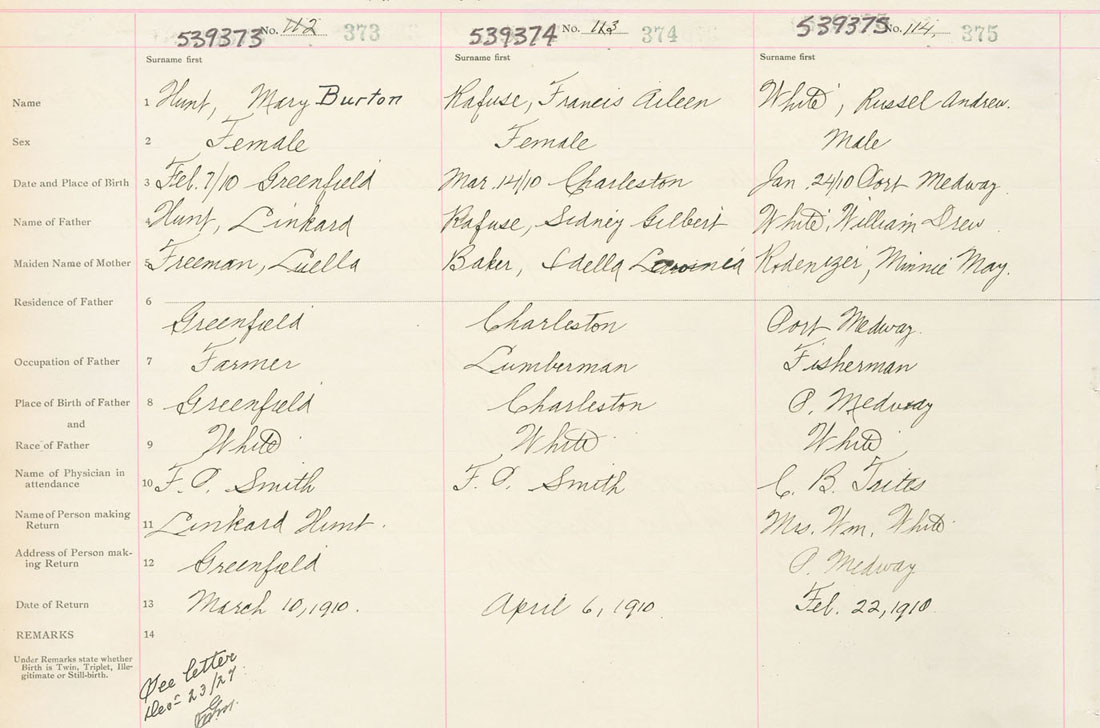 539373 No. 112 373 539374 No. 113 374 539375 No. 114. 375
Surname first Surname first Surname first
Name 1 Hunt, Mary Burton Rafuse, Francis Aileen White, Russel Andrew.
Sex 2 Female Female Male
Date and Place of Birth 3 Feb. 7/10 Greenfield Mar. 14/10 Charleston Jan. 24/10 Port Medway.
Name of Father 4 Hunt, Linkard Rafuse, Sidney Gilbert White, William Drew
Maiden Name of Mother 5 Freeman, Luella Baker, Idella Rodenizer, Minnie May.
Residence of Father 6
Greenfield Charleston Port Medway.
Occupation of Father 7 Farmer Lumberman Fisherman
Place of Birth of Father 8 Greenfield Charleston P. Medway
and
Race of Father 9 White White White
Name of Physician in
attendance 10 F. P. Smith F. P. Smith C. B. Trites
Name of Person making
Return 11 Linkard Hunt. Mrs. Wm. White
Address of Person mak-
ing Return 12 Greenfield P. Medway
Date of Return 13 March 10, 1910. April 6, 1910. Feb. 22, 1910
REMARKS 14
Under Remarks state whether
Birth is Twin, Triplet, Ille-
gitimate or Still-birth.
See letter
Dec 23/27